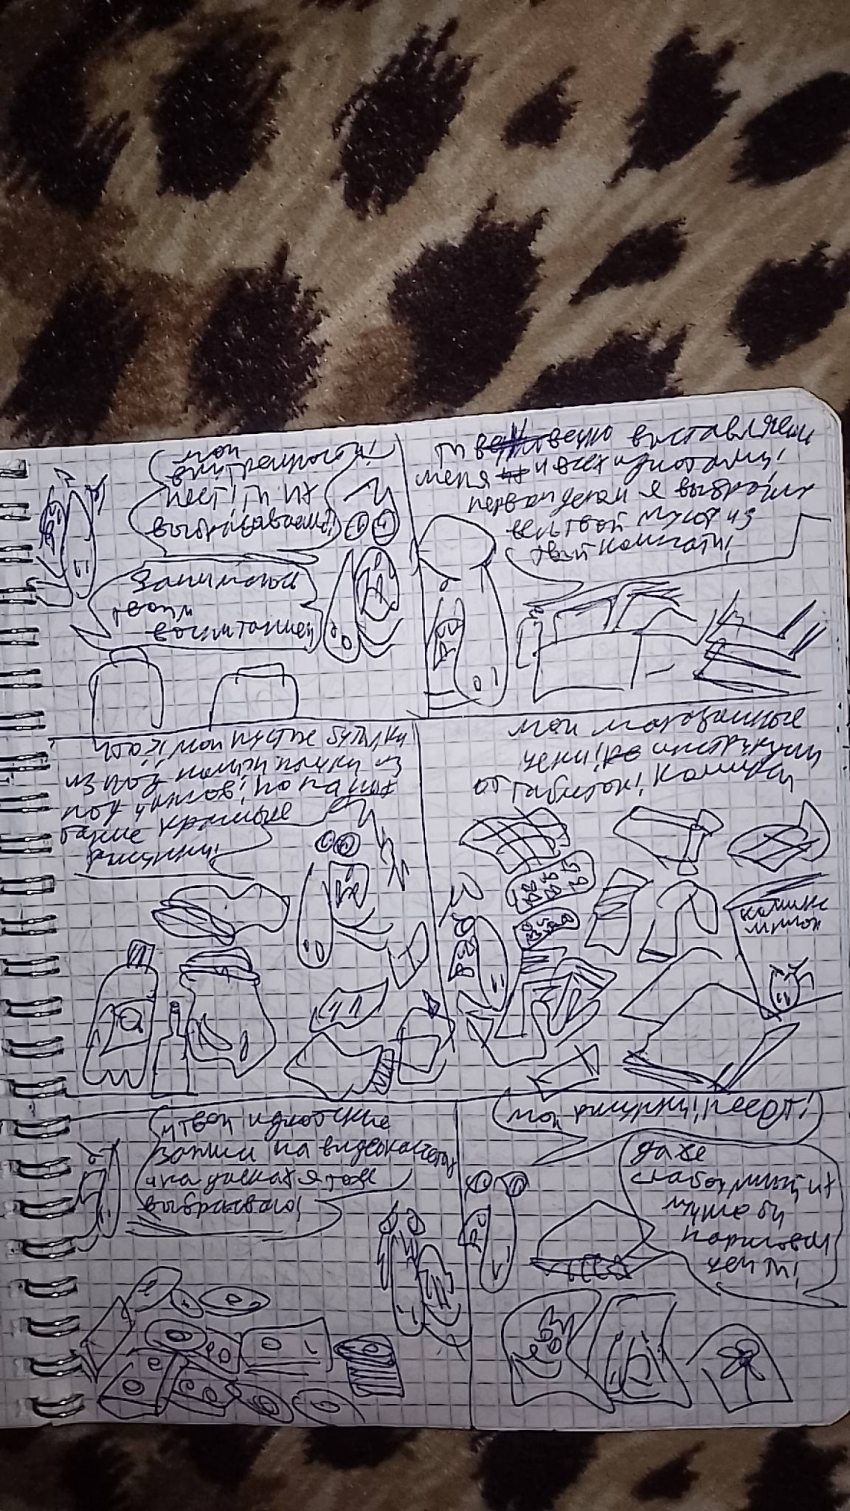 мои
внутренности!
нест! ты их
выбрасываешь!
Занимаюсь
твоим
воспитанием
ты вечно выставляешь
меня и всех идиотами!
первым делом я выброшу
весь твой мусор из
твоей комнаты!
что?! мои пустые бутылки
из под
под
такие красивые
рисунки!
мои
чеки! инструкции
от таблеток! комиксы
комикс
и твои идиотские
записи на видеокассетах
и на дисках я тоже
выбрасываю!
мои рисунки! неет!
даже
слабоумный их
лучше бы
нарисовал
чем ты!